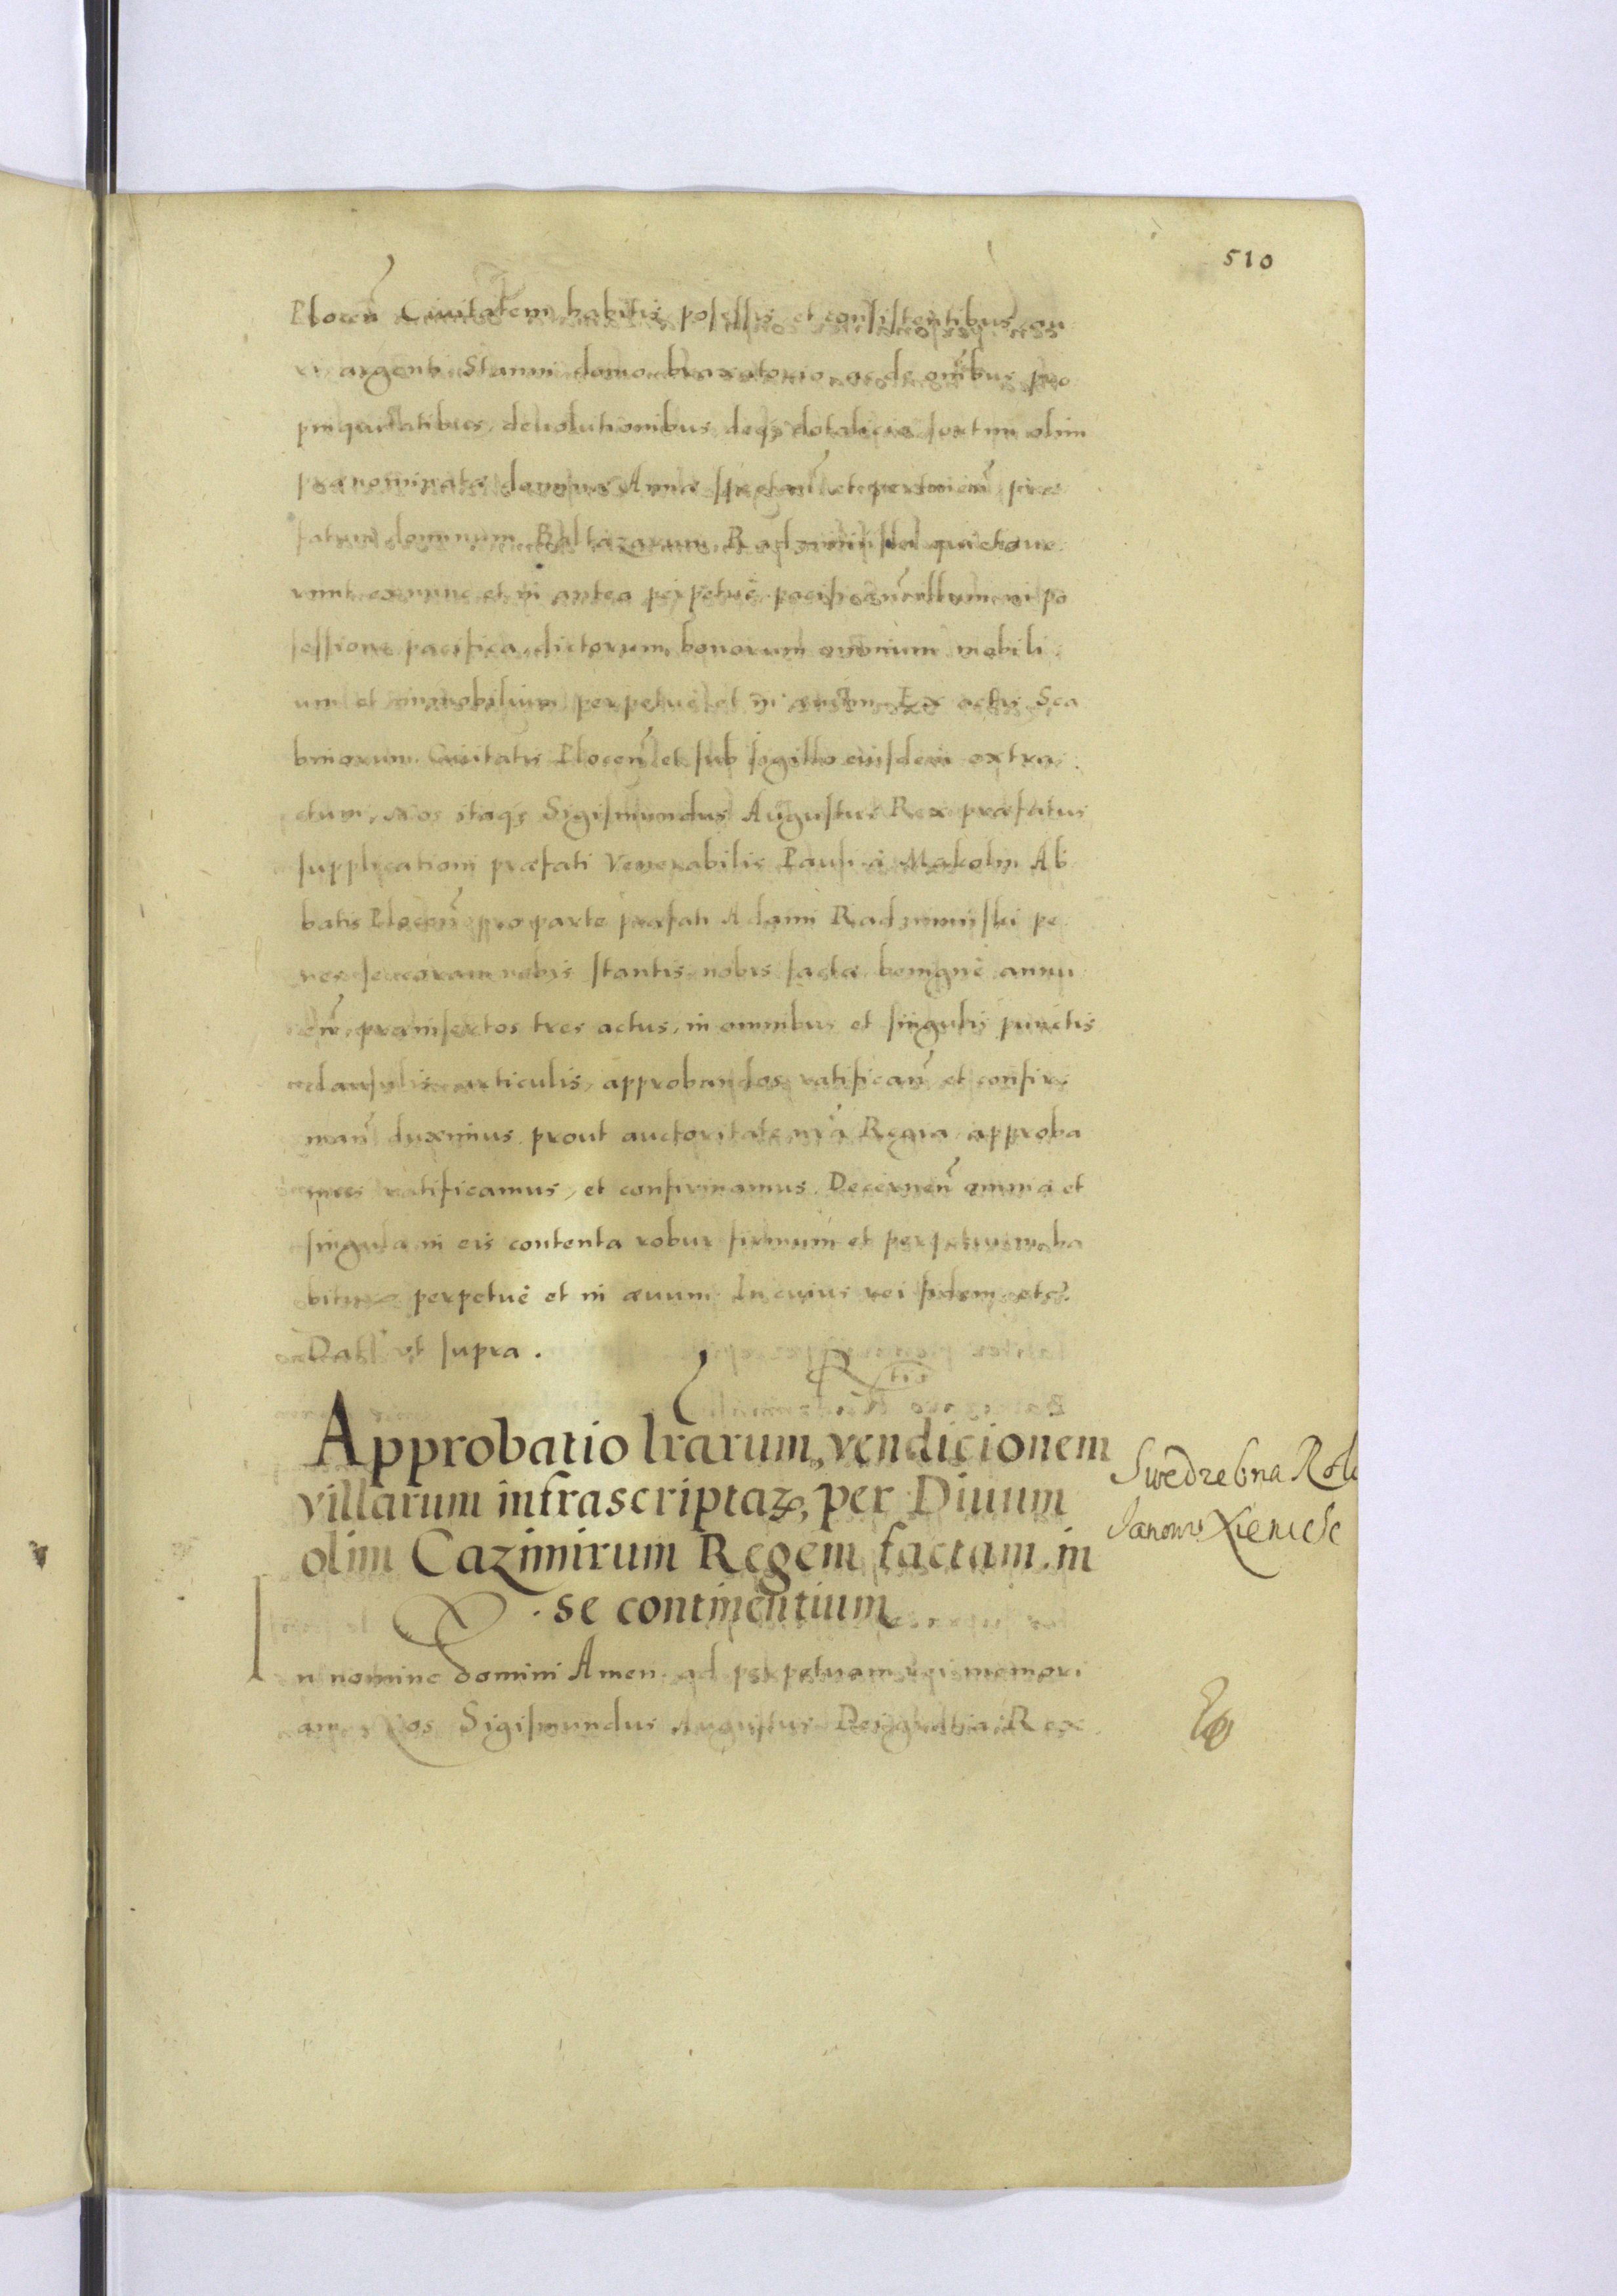 510
Plocen̄ Ciuitatem habitis posessis et consistentibus au
ri argenti Stanni domo braxatorio ac de om̄ibus pro
pinquitatibus, deuolutionibus deq3 dotalicio sortim olim
prænominatæ dominæ Annæ spectan̄ et pertinen̄ præ
fatum dominum Baltazarum Radzimiński quietaue
runt ex nunc et in antea perpetuè pacifican̄ illum in po
sessione pacifica dictorum bonorum omnium mobili
um et immobilium perpetuè et in æuum. Ex actis Sca
biniorum Ciuitatis Plocen̄ et sub sigillo eiusdem extra
ctum, Nos itaq3 Sigismundus Augustus Rex præfatus
supplicationi præfati Venerabilis Pauli à Makolin Ab
batis Plocen̄ pro parte præfati Adami Radzimiński pe
nes se coram nobis stantis nobis factæ benignè annu
en̄, præinsertos tres actus, in omnibus et singulis punctis
clausulis articulis, approbandos ratifican̄ et confir
man̄ duximus prout auctoritate nr̄a Regia approba
mus ratificamus, et confirmamus. Decernen̄ omnia et
singula in eis contenta robur firmum et perpetuum ha
bitura perpetuè et in æuum. In cuius rei fidem etc.
Dat̄ vt supra.
Approbatio lrarum, vendicionem
villarum infrascriptaꝝ, per Diuum
olim Cazimirum Regem factam, in
se continentium
Swedrebna Rola
Janowo Xieniese
In nomine domini Amen. ad perpetuam rei memori
am. Nos Sigismundus Augustus Dei gratia Rex